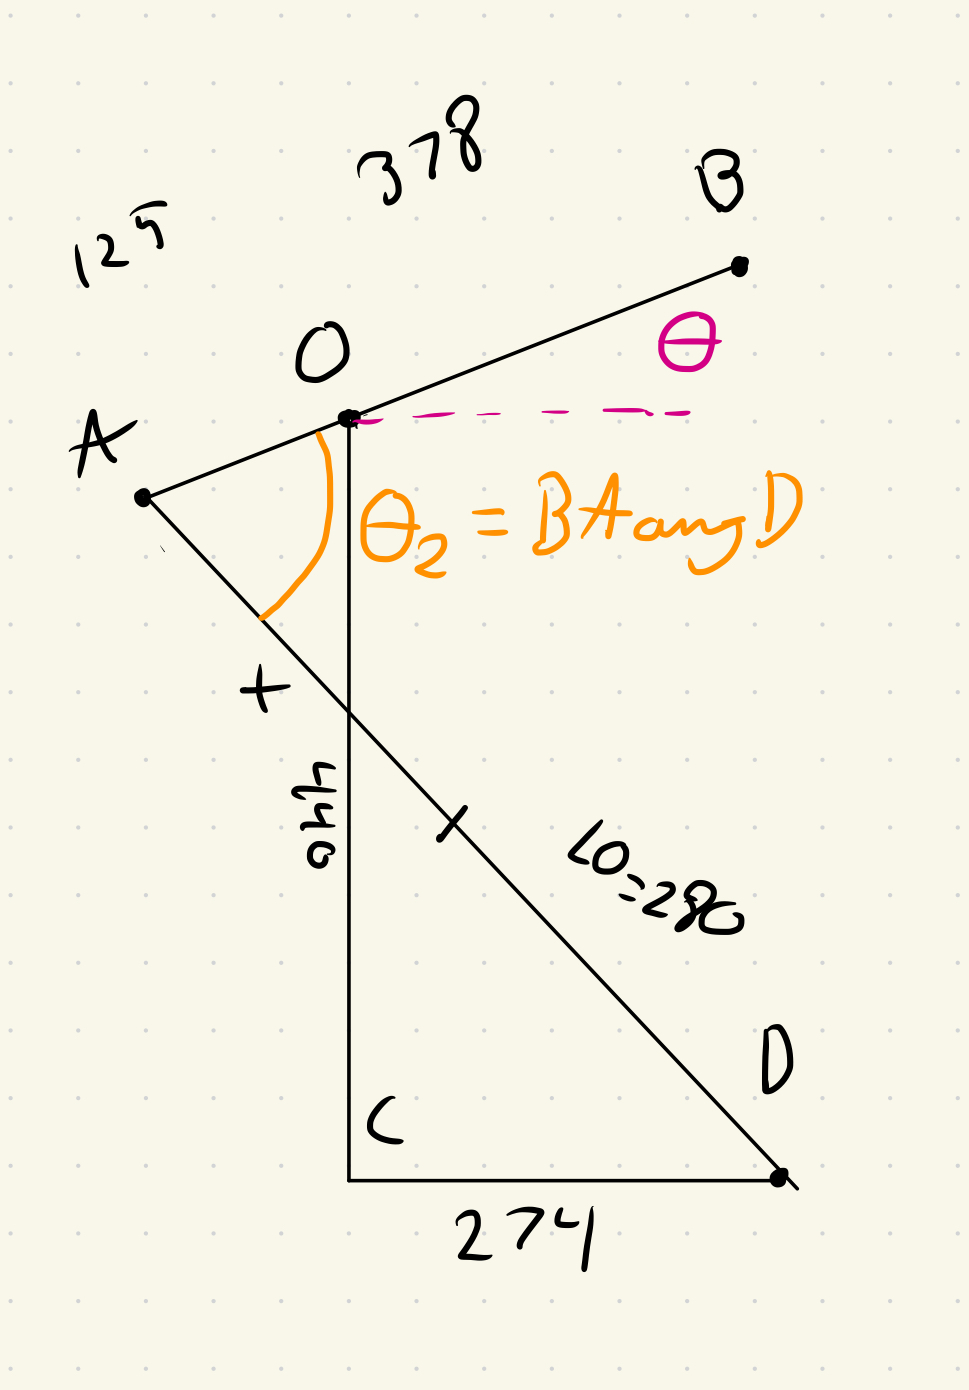 378
B
125
O
θ
A
θ₂ = BA ang D
+
440
L0=280
D
C
274